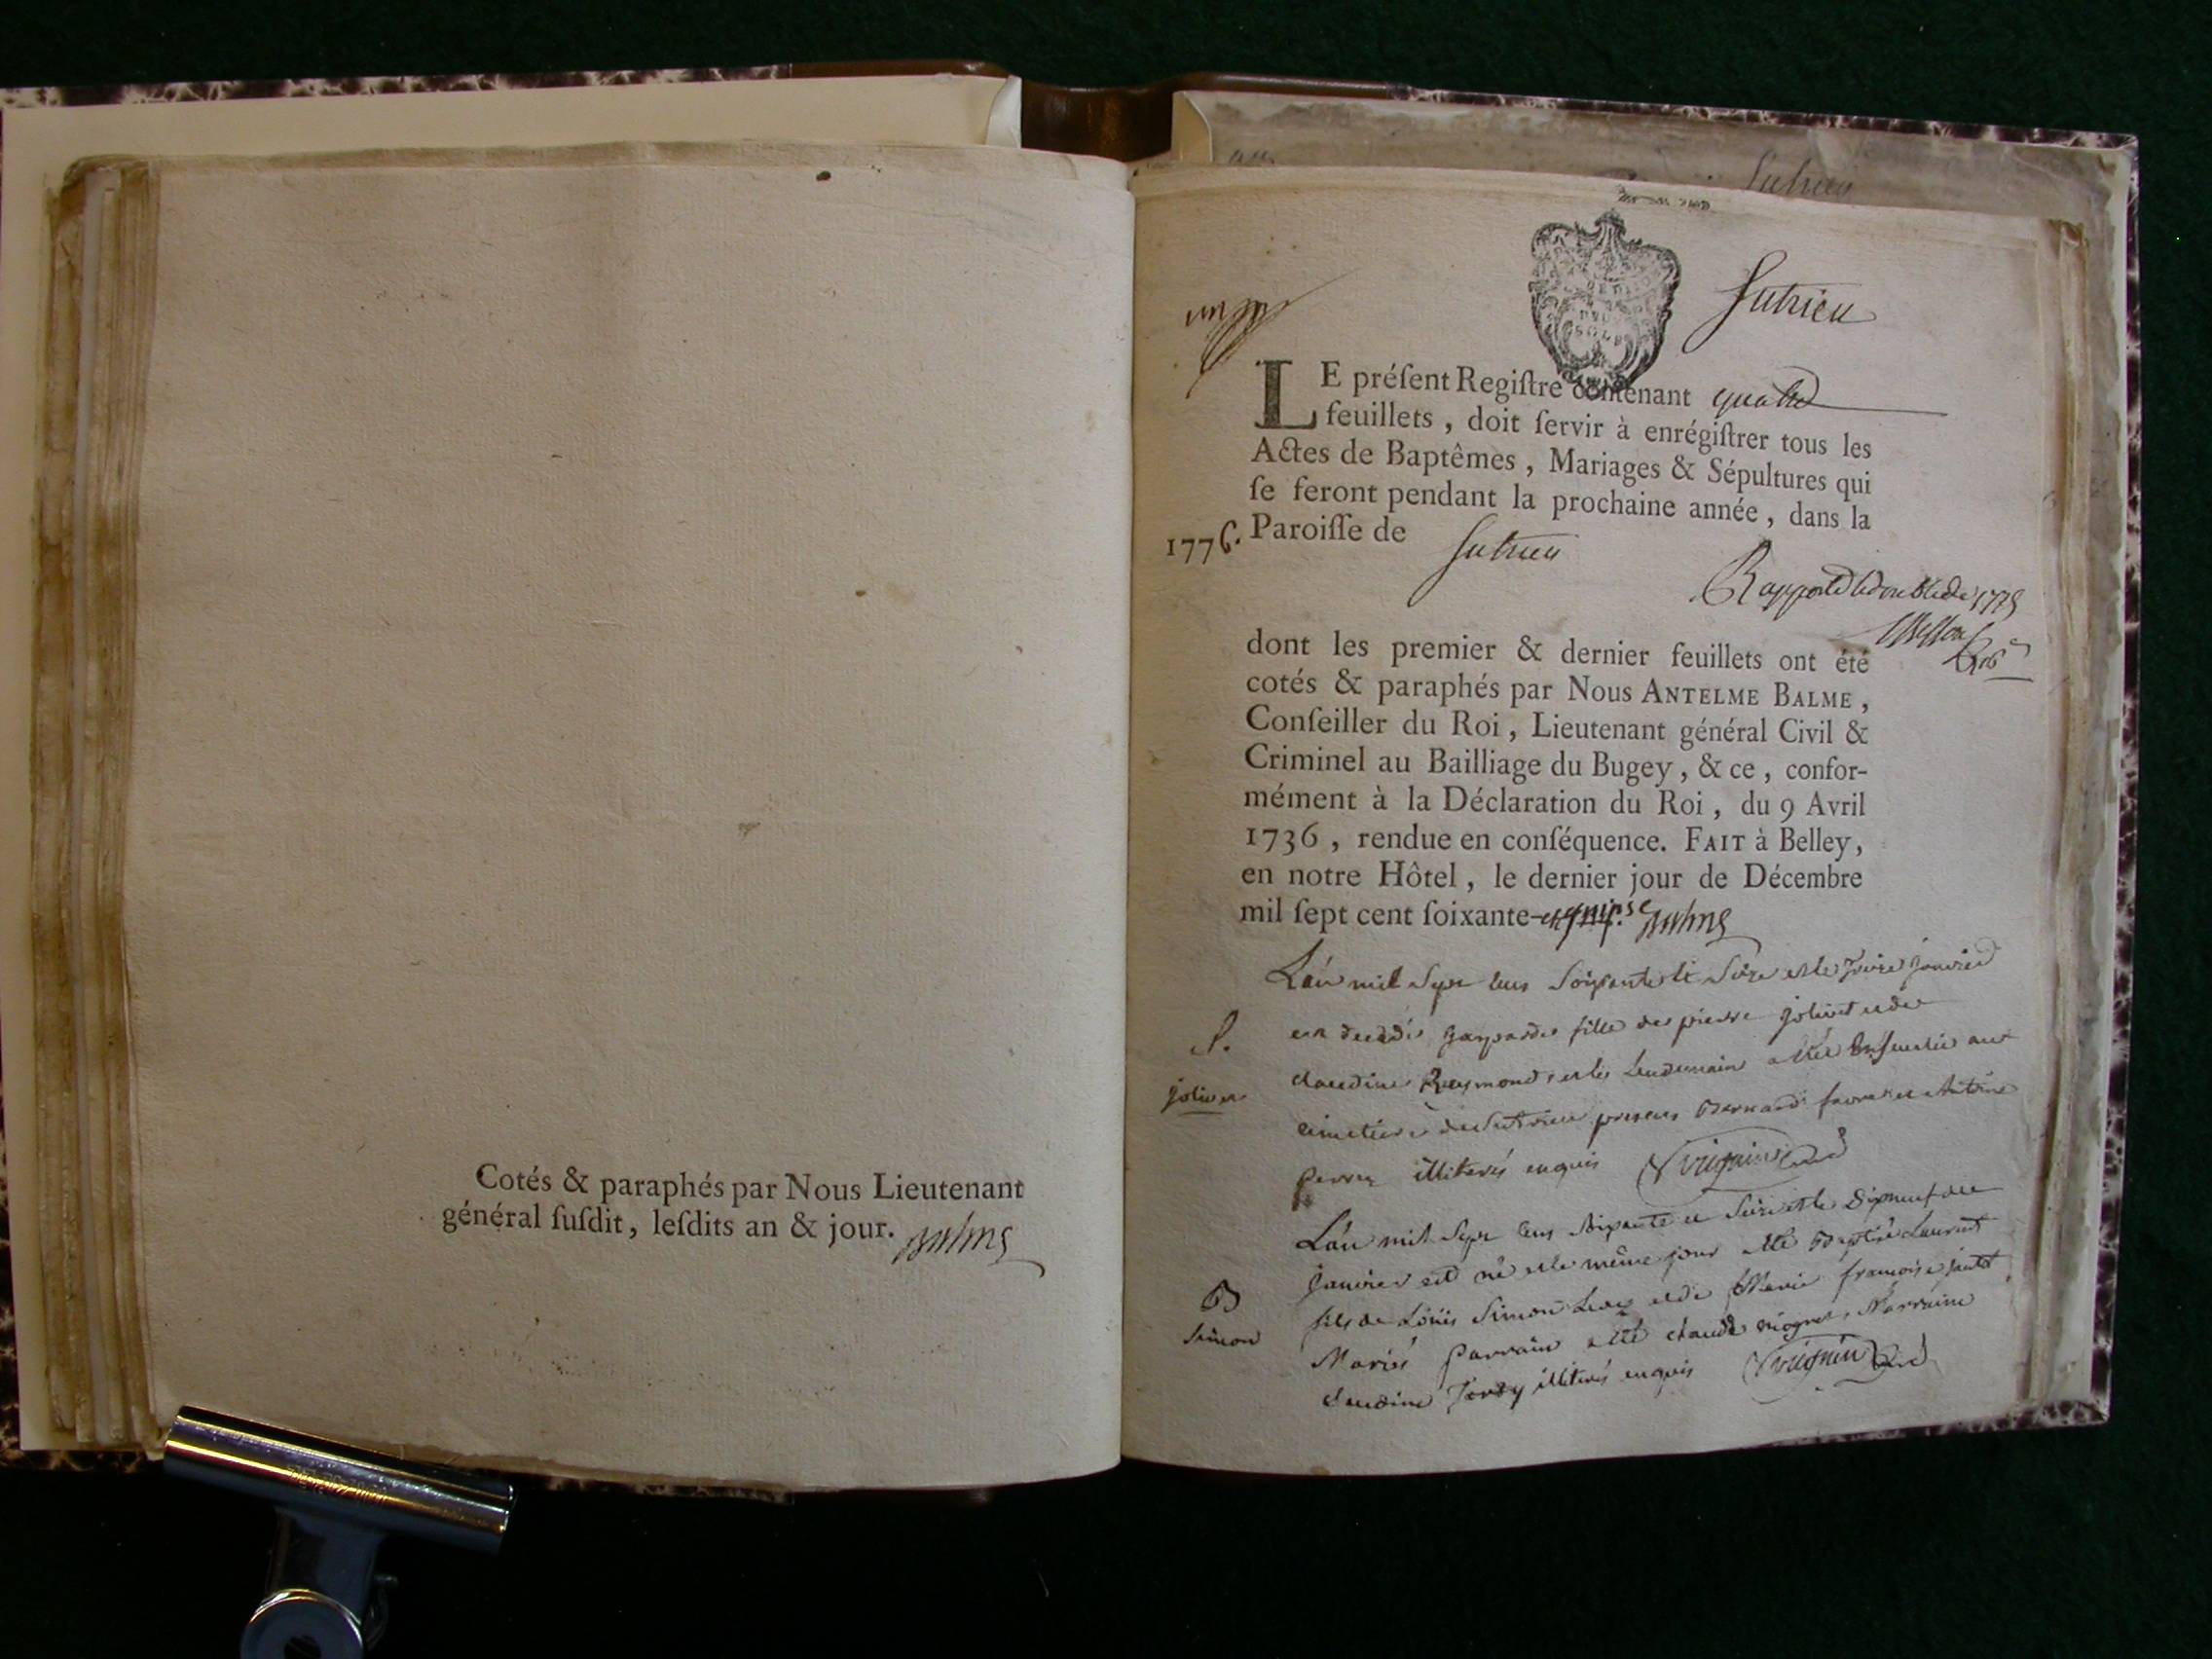 Cotés & paraphés par Nous Lieutenant
général ſuſdit, leſdits an & jour.
Sutrieu
Sutrieu
LE préſent Regiſtre contenant quatre
feuillets, doit ſervir à enrégiſtrer tous les
Actes de Baptêmes, Mariages & Sépultures qui
ſe feront pendant la prochaine année, dans la
1776. Paroiſſe de Sutrieu
Rapporté le double de 1775
dont les premier & dernier feuillets ont été
cotés & paraphés par Nous ANTELME BALME,
Conſeiller du Roi, Lieutenant général Civil &
Criminel au Bailliage du Bugey, & ce, confor-
mément à la Déclaration du Roi, du 9 Avril
1736, rendue en conſéquence. FAIT à Belley,
en notre Hôtel, le dernier jour de Décembre
mil ſept cent ſoixante-et quinse
L'an mil Sept cens Soixante et Seize et le janvier
S. est decedé gasparde fille de pierre jolivet et de
jolivet claudine Reymond et le lendemain a été ensevelie au
cimetiere de Sutrieu presens Bernard favre et Antoine
perret illiterés enquis
L'an mil Sept cens Soixante et Seize et le dixneuf
B janvier est né et le même jour a été Baptisé Laurent
Simon fils de Loüis Simon et de Marie francoise
Mariés Parrain a été claude Marraine
claudine illiterés enquis